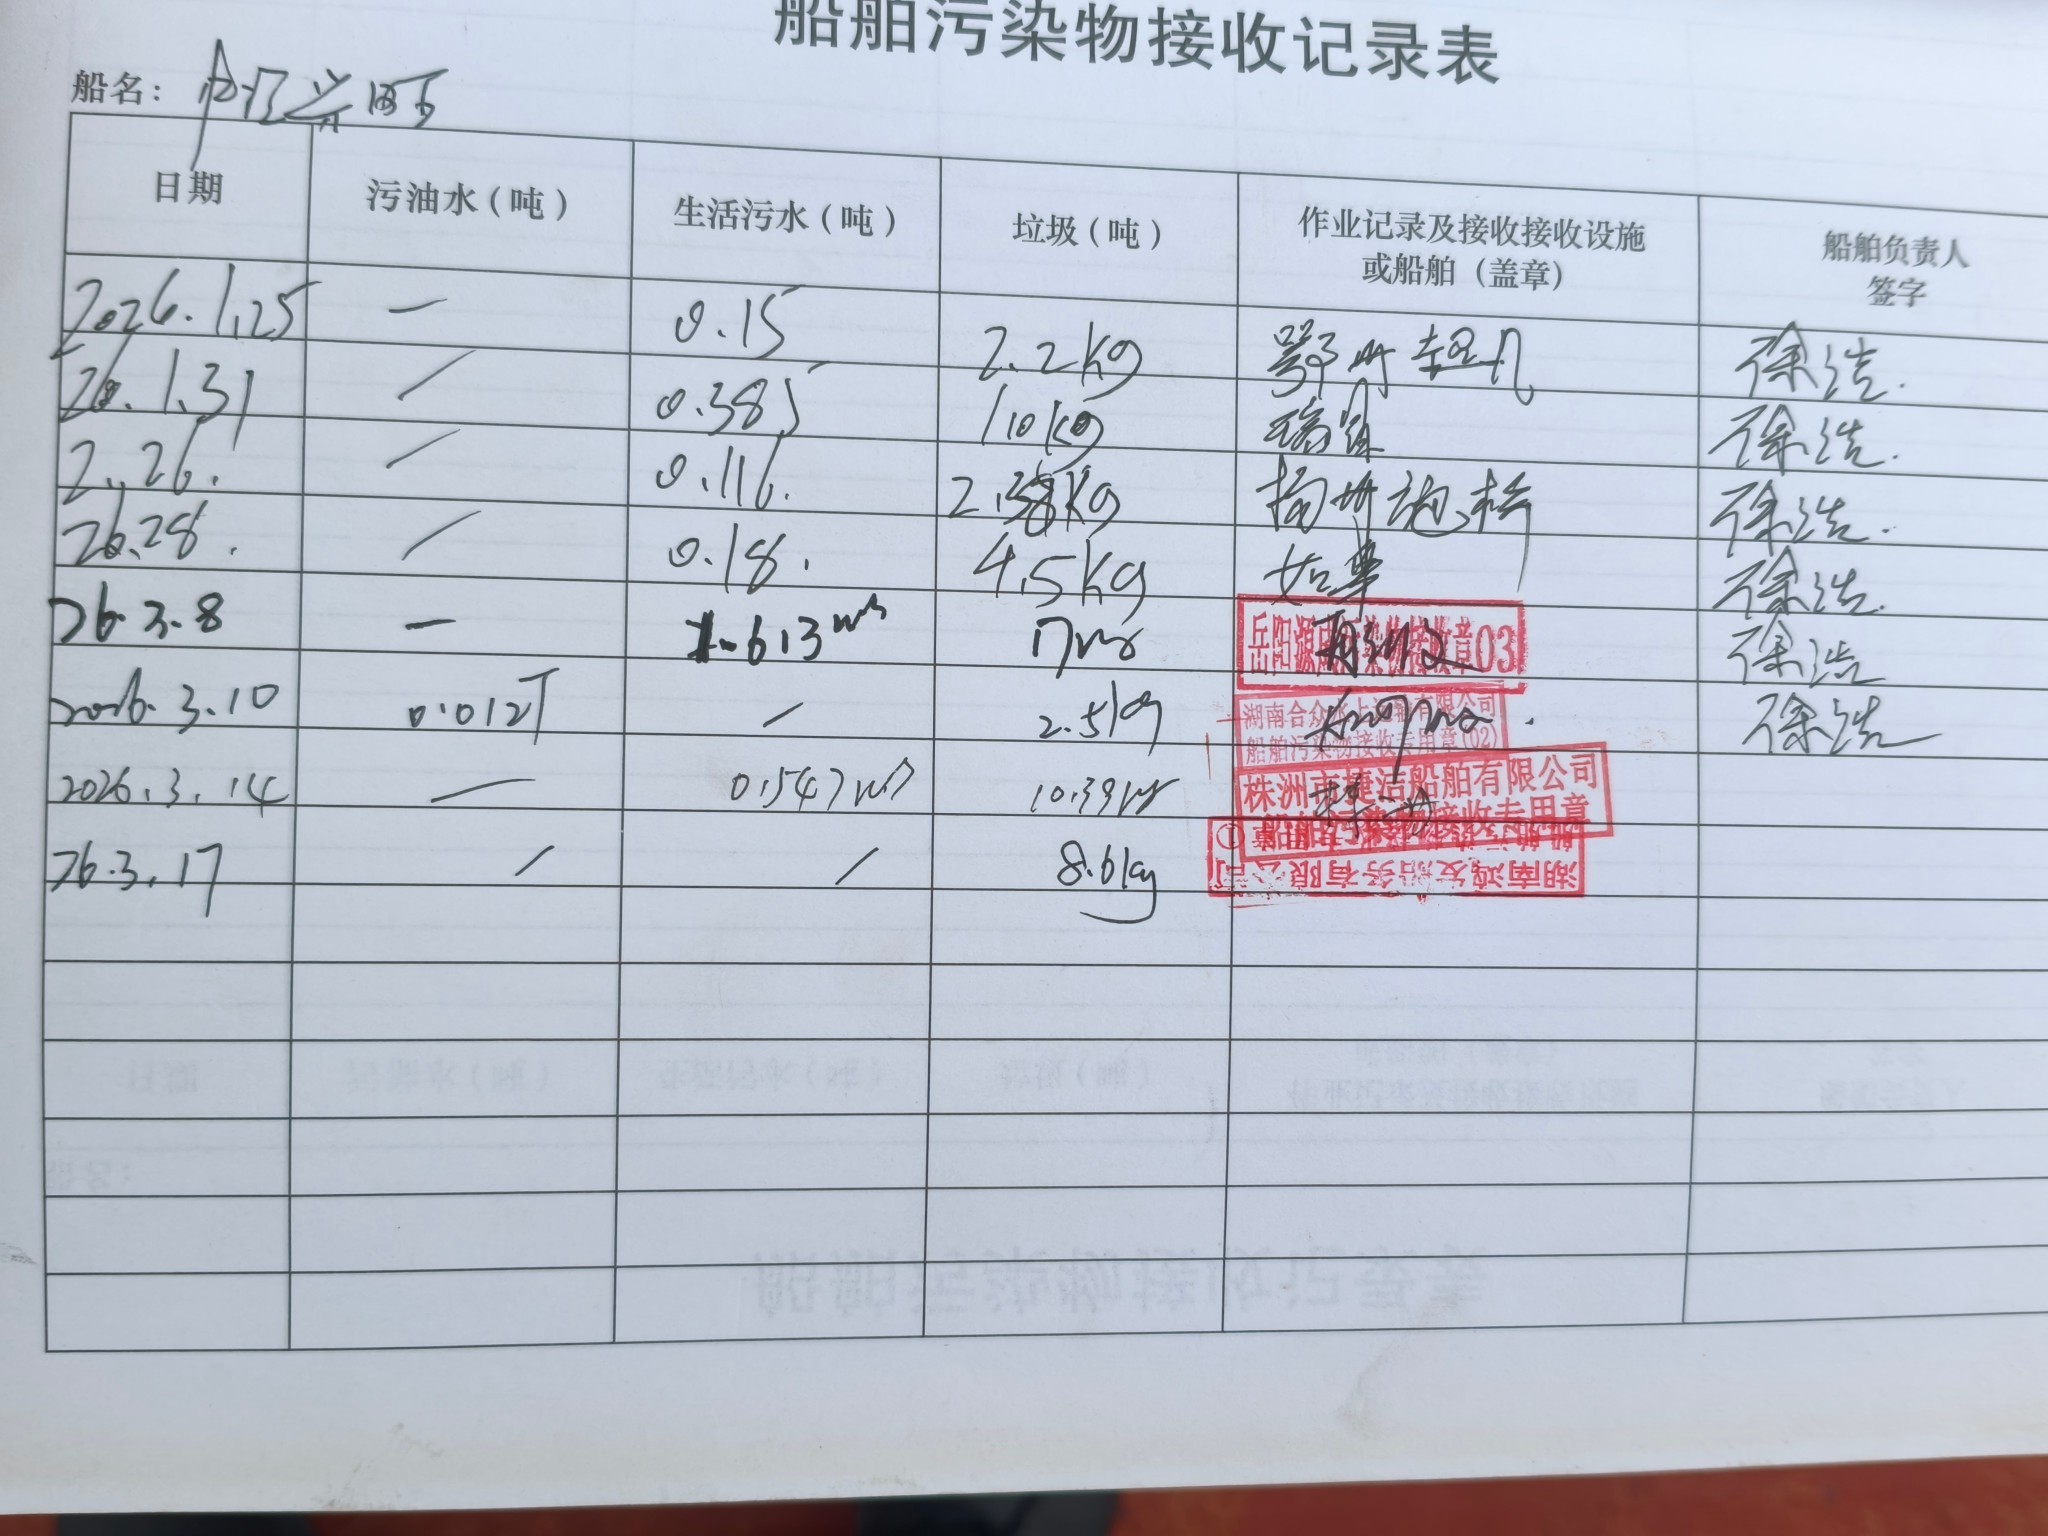 船舶污染物接收记录表
船名：
日期 污油水（吨） 生活污水（吨） 垃圾（吨） 作业记录及接收接收设施或船舶（盖章） 船舶负责人签字
2026.1.25 — 0.15 2.2kg 鄂州超凡 徐浩.
26.1.31 / 0.385 10kg 徐浩.
2.26. / 0.116. 徐浩.
26.28. / 0.18. 4.5kg 徐浩.
26.3.8 — 613m³ 岳阳源 污染物接收章03 徐浩
2026.3.10 0.012T / 2.5kg 湖南合众水上运输有限公司 船舶污染物接收专用章(02) 徐浩
2026.3.14 — 0.547m³ 株洲市捷洁船舶有限公司 接收专用章
26.3.17 / / 8.6kg 湖南鸿发船务有限公司 ①